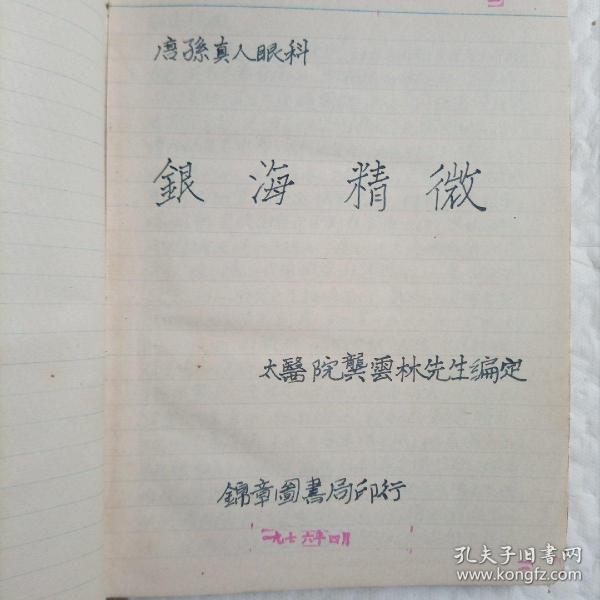 唐孫真人眼科
銀海精微
太醫院龔雲林先生編定
錦章圖書局印行
一九七六年四月
孔夫子旧书网
www.kongfz.com